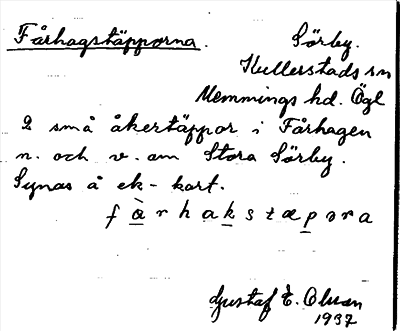 Fårhagstäpporna. Sörby.
Kullerstads sn
Memmings hd. Ögl
2 små åkertäppor i Fårhagen
n. och v. om Stora Sörby.
Synas å ek-kart.
f à r h a k s t æ p ə r a
Gustaf E. Olsson
1937